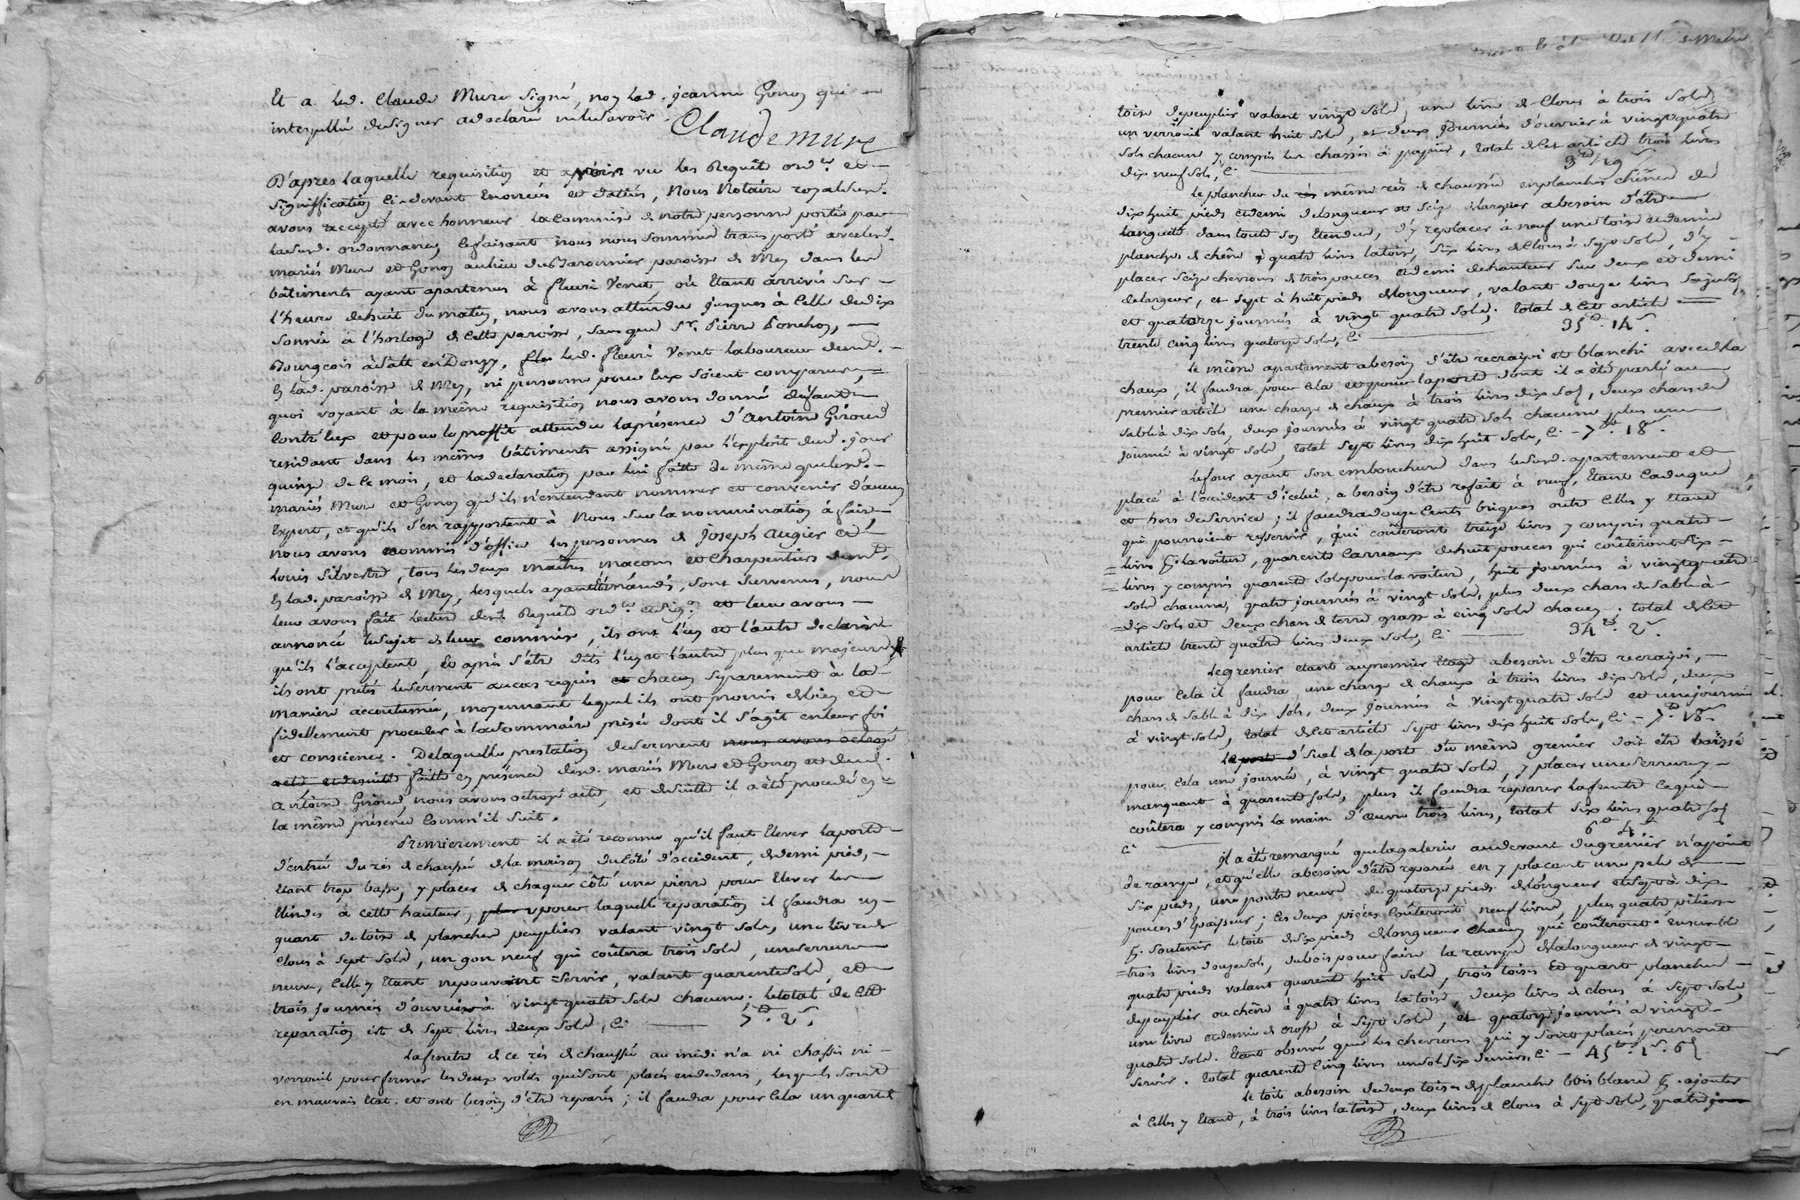 Et a led. Claude Mure signé, non lad. jeanne Gonon qui
interpellée de signer a declaré ne le savoir.
Claude mure
D'apres laquelle requisition et après vu les Requête ord.ce et
signiffication ci-devant enoncées et dattées, Nous Notaire royal susd.
avons accepté avec honneur la commission de notre personne portée par
lad. ordonnance, ce faisant nous nous sommes transporté avec lesd.
mariés Mure et Gonon au lieu du paroisse de Mey dans les
bâtiments ayant apartenus à fleuri Venet, où étant arrivés sur
l'heure de huit du matin, nous avons attendu jusques à celle de dix
sonnée à l'horloge de cette paroisse, sans que Sr. Pierre Ponchon,
Bourgeois à Salt en Donzy, led. fleuri Venet laboureur demt.
en lad. paroisse de Mey, ni personne pour eux soient comparus,
quoi voyant à la même requisition nous avons donné défaut
contr'eux et pour le proffit attendu la présence d'antoine Giroud
residant dans les mêmes bâtiments assigné par l'exploit dud. jour
quinze de ce mois, et la declaration par lui faitte de même que lesd.
mariés Mure et Gonon qu'ils n'entendent nommer et convenir d'aucun
expert, et qu'ils s'en rapportent à Nous sur la nommination à faire
nous avons commis d'office les personnes de Joseph Augier et
louis Silvestre, tous les deux maîtres maçons et charpentiers demt.
en lad. paroisse de Mey, lesquels ayant été mandés, sont survenus, nous
leur avons fait lecture desd. Requête ord.ce et sig.on et leur avons
annoncé le sujet de leur commise, ils ont l'un et l'autre declaré
qu'ils l'acceptent, et après s'être dits l'un et l'autre plus que majeurs
ils ont prêté le serment au cas requis et chacun séparement à la
maniere accoutumée, moyennant lequel ils ont promis de bien et
fidellement proceder à la sommaire prisée dont il s'agit en leur foi
et conscience. De laquelle prestation de serment nous avons octroyé
acte et desuitte faitte en présence desd. mariés Mure et Gonon et dud.
antoine Giroud, nous avons octroyé acte, et desuitte il a été procedé en
la même présence comm'il suit.
Premierement il a été reconnu qu'il faut élever la porte
d'entrée du rès de chaussée de la maison du côté d'occident, de demi pied,
étant trop basse, y placer de chaque côté une pierre pour élever les
à cette hauteur, pour laquelle réparation il faudra un
quart de toise de plancher peuplier valant vingt sols, une livre de
clous à sept sols, un gon neuf qui coûtera trois sols, une serrure
neuve, celle y étant ne pouvant servir, valant quarente sols, et
trois journées d'ouvriers à vingt quatre sols chacune; le total de cette
reparation est de sept livres deux sols, ci 7 #. 2 s.
La fenêtre de ce rès de chaussée au midi n'a ni chassis ni
verrouil pour fermer les deux volets qui sont placés en dedans, lesquels sont
en mauvais état et ont besoin d'être reparés; il faudra pour cela un quart de
toise de peuplier valant vingt sols, une livre de clous à trois sols,
un verrouil valant huit sols, et deux journées d'ouvrier à vingt quatre
sols chacune y compris les chassis à papier, total de cet article trois livres
dix neuf sols, ci 3 # 19 s
le plancher du même rès de chaussée en planches chêne de
dix huit pieds et demi de longueur et seize de largeur a besoin d'être
dans toute son étendue, d'y replacer à neuf une toise et demie
planches de chêne à quatre livres la toise, six livres de clous à sept sols, d'y
placer seize chevrons de trois pouces et demi de hauteur sur deux et demi
de largeur, et sept à huit pieds de longueur, valant douze livres
et quatorze journées à vingt quatre sols; total de cet article
trente cinq livres quatorze sols, ci 35 #. 14 s.
le même apartement a besoin d'être recrepi et blanchi avec de la
chaux, il faudra pour cela et pour la porte dont il a été parlé au
premier article une charge de chaux à trois livres dix sols, deux chars de
sable à dix sols, deux journées à vingt quatre sols chacune plus une
journée à vingt sols, total sept livres dix huit sols, ci - 7 #. 18 s.
Le four ayant son embouchure dans le susd. apartement et
placé à l'occident d'icelui, a besoin d'être refait à neuf, étant caduque
et hors de service; il faudra douze cents briques outre celles y étant
qui pourroient resservir, qui coûteront treize livres y compris quatre
livres pr. la voiture, quarente carreaux de huit pouces qui coûteront six
livres y compris quarente sols pour la voiture, huit journées à vingt quatre
sols chacune, quatre journées à vingt sols, plus deux chars de sable à
dix sols et deux chars de terre grasse à cinq sols chacun; total de cet
article trente quatre livres deux sols, ci 34 #. 2 s.
Le grenier étant au premier étage a besoin d'être recrepi,
pour cela il faudra une charge de chaux à trois livres dix sols, deux
chars de sable à dix sols, deux journées à vingt quatre sols et une journée
à vingt sols, total de cet article sept livres dix huit sols, ci - 7 #. 18 s
Le seuil de la porte du même grenier doit être baissé
pour cela une journée, à vingt quatre sols, y placer une serrure y
manquant à quarente sols, plus il faudra reparer la fenêtre ce qui
coûtera y compris la main d'oeuvre trois livres, total six livres quatre sols
ci 6 # 4 s
il a été remarqué que la galerie au devant du grenier n'a point
de rampe, et qu'elle a besoin d'être reparée en y placant une pele de
six pieds, une poutre neuve de quatorze pieds de longueur et sept à dix
pouces d'épaisseur; ces deux pièces coûteront neuf livres, plus quatre piliers
pr. soutenir le toit de six pieds de longueur chacun qui coûteront ensemble
trois livres douze sols, du bois pour faire la rampe de la longueur de vingt
quatre pieds valant quarente huit sols, trois toises et quart planches
de peuplier ou chêne à quatre livres la toise, deux livres de clous à sept sols,
une livre et demie de crosse à sept sols, et quatorze journées à vingt
quatre sols. Etant observé que les chevrons qui y sont placés pourront
servir. Total quarente cinq livres un sol six deniers, ci - 45 #. 1 s. 6 d.
le toit a besoin de deux toises de planche bois blanc pr. ajouter
à celles y étant, à trois livres la toise, deux livres de clous à sept sols, quatre jour